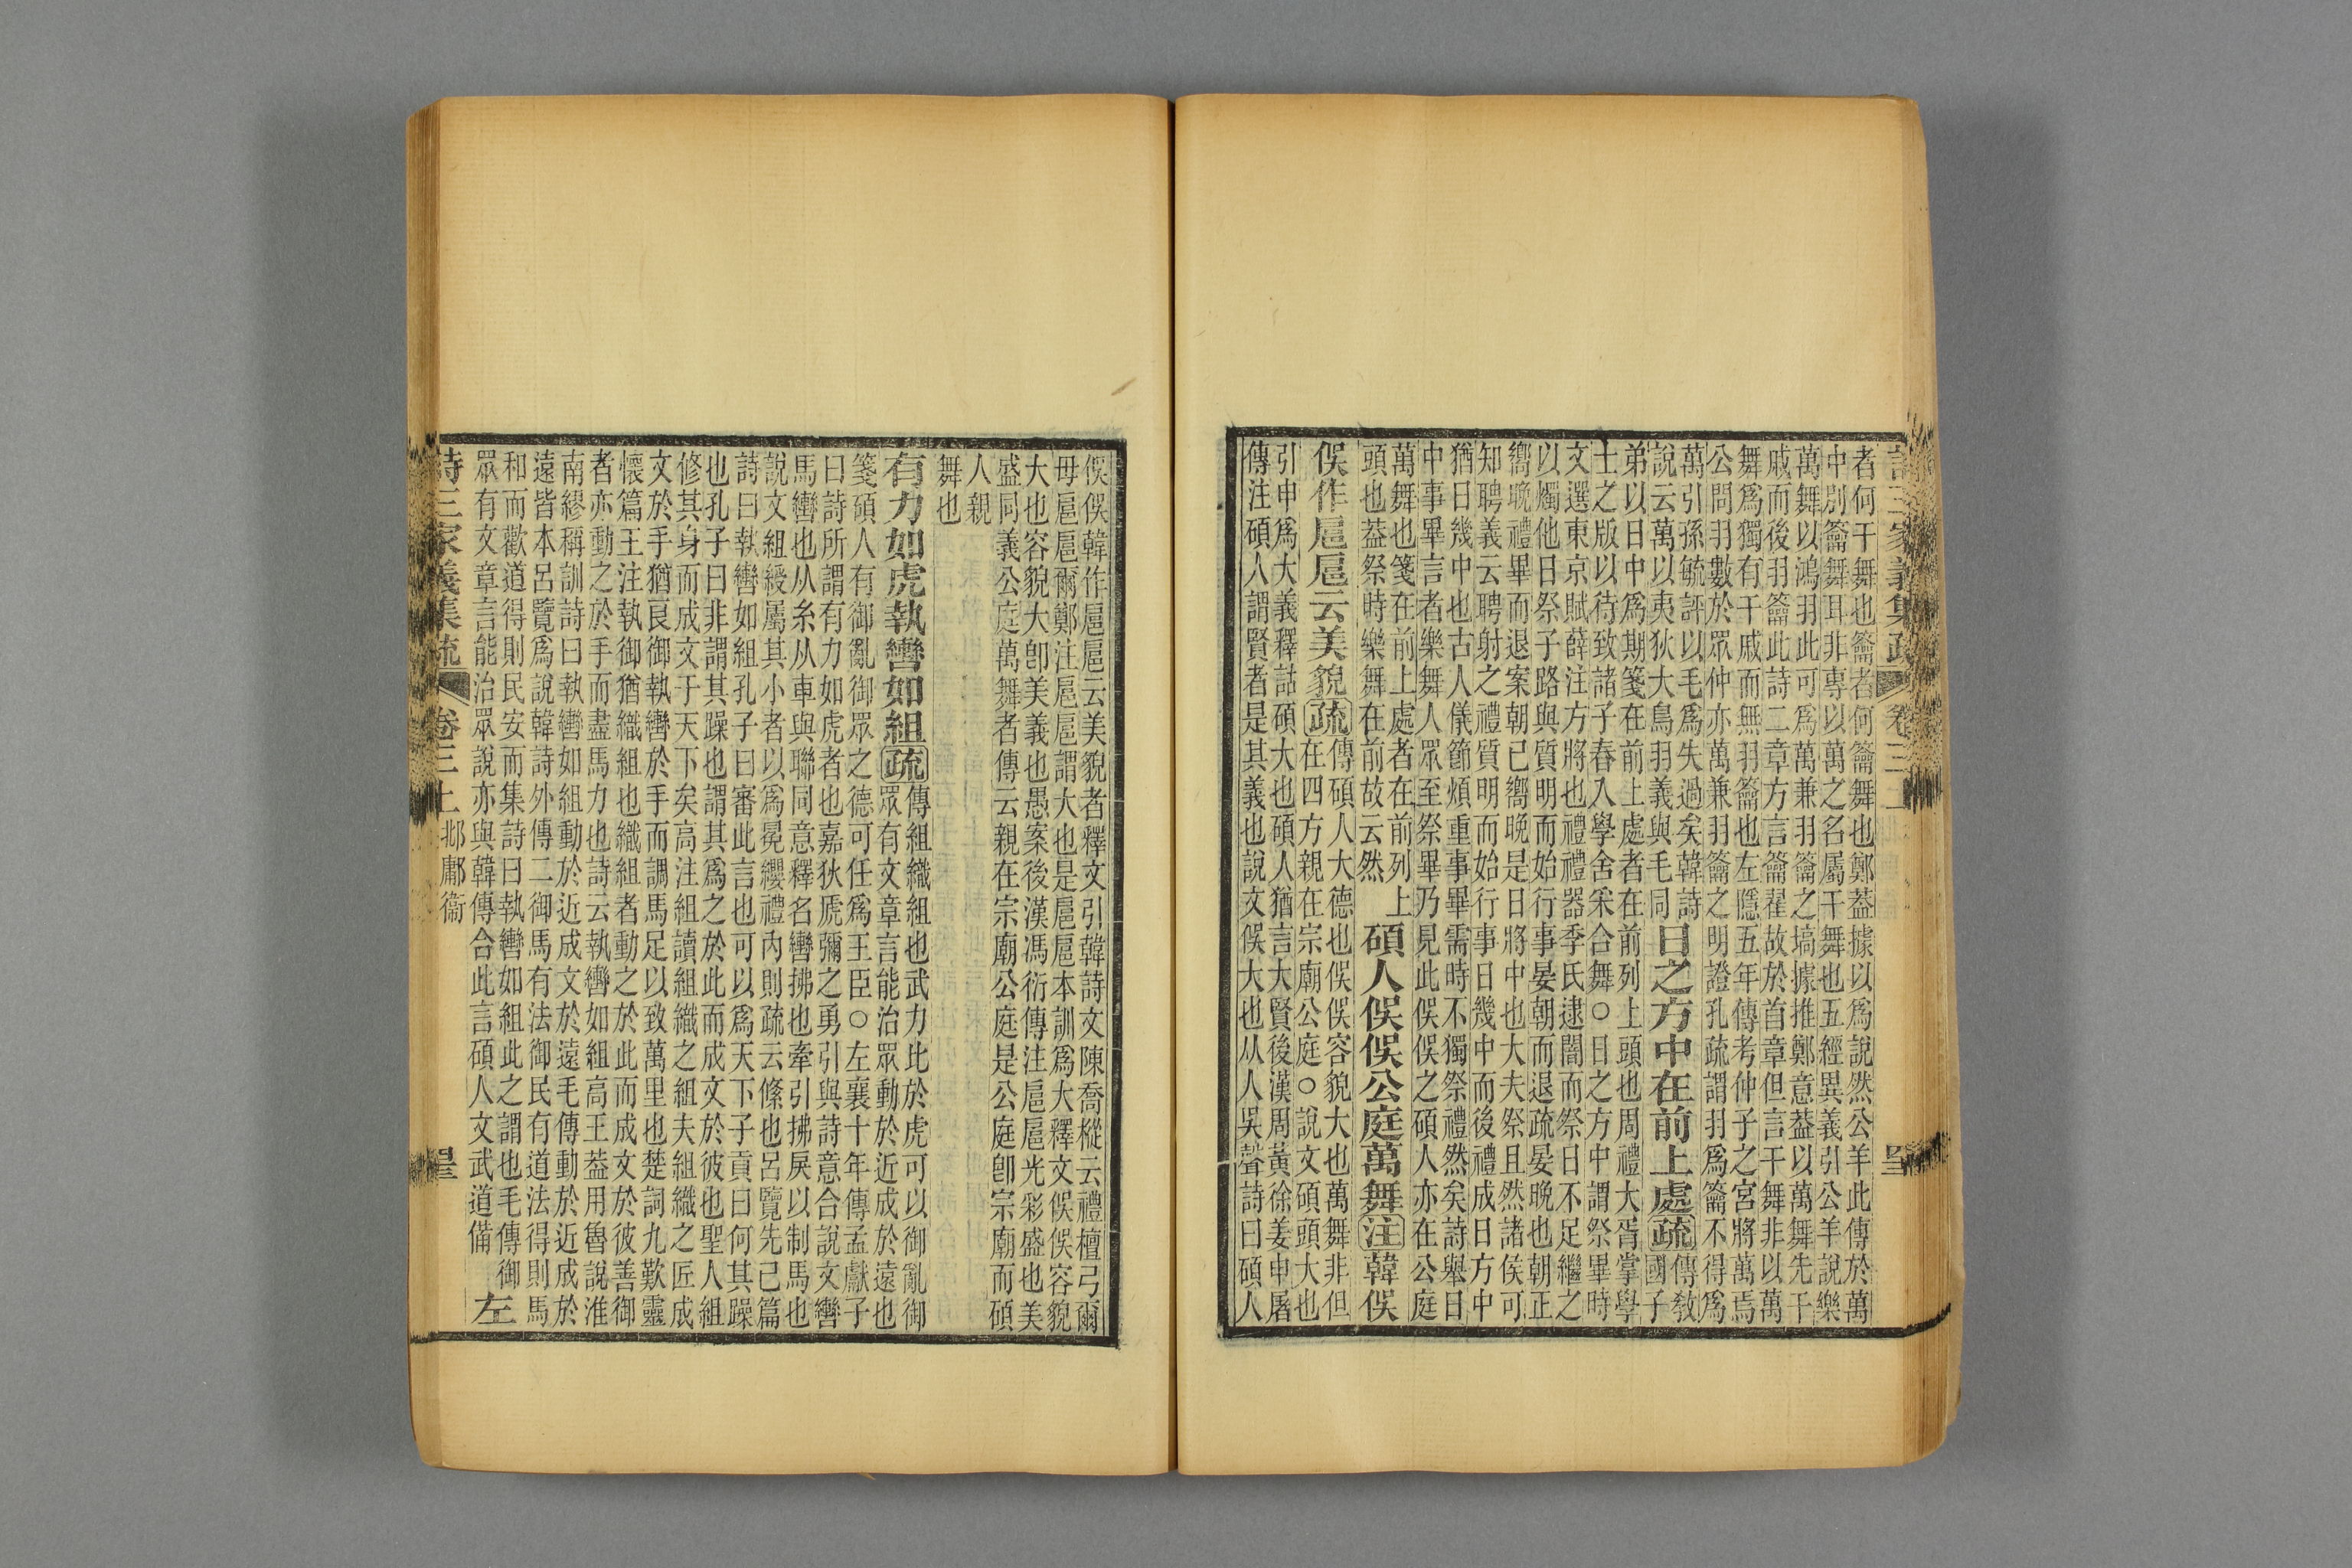 詩三家義集疏 卷三上
者何干舞也籥者何籥舞也鄭葢據以爲說然公羊此傳於萬
中別籥舞耳非專以萬之名屬干舞也五經異義引公羊說樂
萬舞以鴻羽此可爲萬兼羽籥之塙據推鄭意葢以萬舞先干
戚而後羽籥此詩二章方言籥翟故於首章但言干舞非以萬
舞爲獨有干戚而無羽籥也左隱五年傳考仲子之宮將萬焉
公問羽數於眾仲亦萬兼羽籥之明證孔疏謂羽爲籥不得爲
萬引孫毓評以毛爲失過矣韓詩
說云萬以夷狄大鳥羽義與毛同
日之方中在前上處疏
傳敎
國子
弟以日中爲期箋在前上處者在前列上頭也周禮大胥掌學
士之版以待致諸子春入學舍采合舞○日之方中謂祭畢時
文選東京賦薛注方將也禮禮器季氏逮闇而祭日不足繼之
以燭他日祭子路與質明而始行事晏朝而退疏晏晚也朝正
嚮晚禮畢而退案朝已嚮晚是日將中也大夫祭且然諸侯可
知聘義云聘射之禮質明而始行事日幾中而後禮成日方中
猶日幾中也古人儀節煩重事畢需時不獨祭禮然矣詩舉日
中事畢言者樂舞人眾至祭畢乃見此俣俣之碩人亦在公庭
萬舞也箋在前上處者在前列上
頭也葢祭時樂舞在前故云然
碩人俣俣公庭萬舞注韓俣
俣作扈扈云美貌疏
傳碩人大德也俣俣容貌大也萬舞非但
在四方親在宗廟公庭○說文碩頭大也
引申爲大義釋詁碩大也碩人猶言大賢後漢周黃徐姜申屠
傳注碩人謂賢者是其義也說文俣大也从人吳聲詩曰碩人
俣俣韓作扈扈云美貌者釋文引韓詩文陳喬樅云禮檀弓爾
毋扈扈爾鄭注扈扈謂大也是扈扈本訓爲大釋文俣俣容貌
大也容貌大卽美義也愚案後漢馮衍傳注扈扈光彩盛也美
盛同義公庭萬舞者傳云親在宗廟公庭是公庭卽宗廟而碩
人親
舞也
有力如虎執轡如組疏
傳組織組也武力比於虎可以御亂御
眾有文章言能治眾動於近成於遠也
箋碩人有御亂御眾之德可任爲王臣○左襄十年傳孟獻子
曰詩所謂有力如虎者也嘉狄虒彌之勇引與詩意合說文轡
馬轡也从糸从車與聯同意釋名轡拂也牽引拂戾以制馬也
說文組綬屬其小者以爲冕纓禮內則疏云絛也呂覽先己篇
詩曰執轡如組孔子曰審此言也可以爲天下子貢曰何其躁
也孔子曰非謂其躁也謂其爲之於此而成文於彼也聖人組
修其身而成文于天下矣高注組讀組織之組夫組織之匠成
文於手猶良御執轡於手而調馬足以致萬里也楚詞九歎靈
懷篇王注執御猶織組也織組者動之於此而成文於彼善御
者亦動之於手而盡馬力也詩云執轡如組高王葢用魯說淮
南繆稱訓詩曰執轡如組動於近成文於遠毛傳動於近成於
遠皆本呂覽爲說韓詩外傳二御馬有法御民有道法得則馬
和而歡道得則民安而集詩曰執轡如組此之謂也毛傳御
眾有文章言能治眾說亦與韓傳合此言碩人文武道備
左
詩三家義集疏 卷三上 邶鄘衞